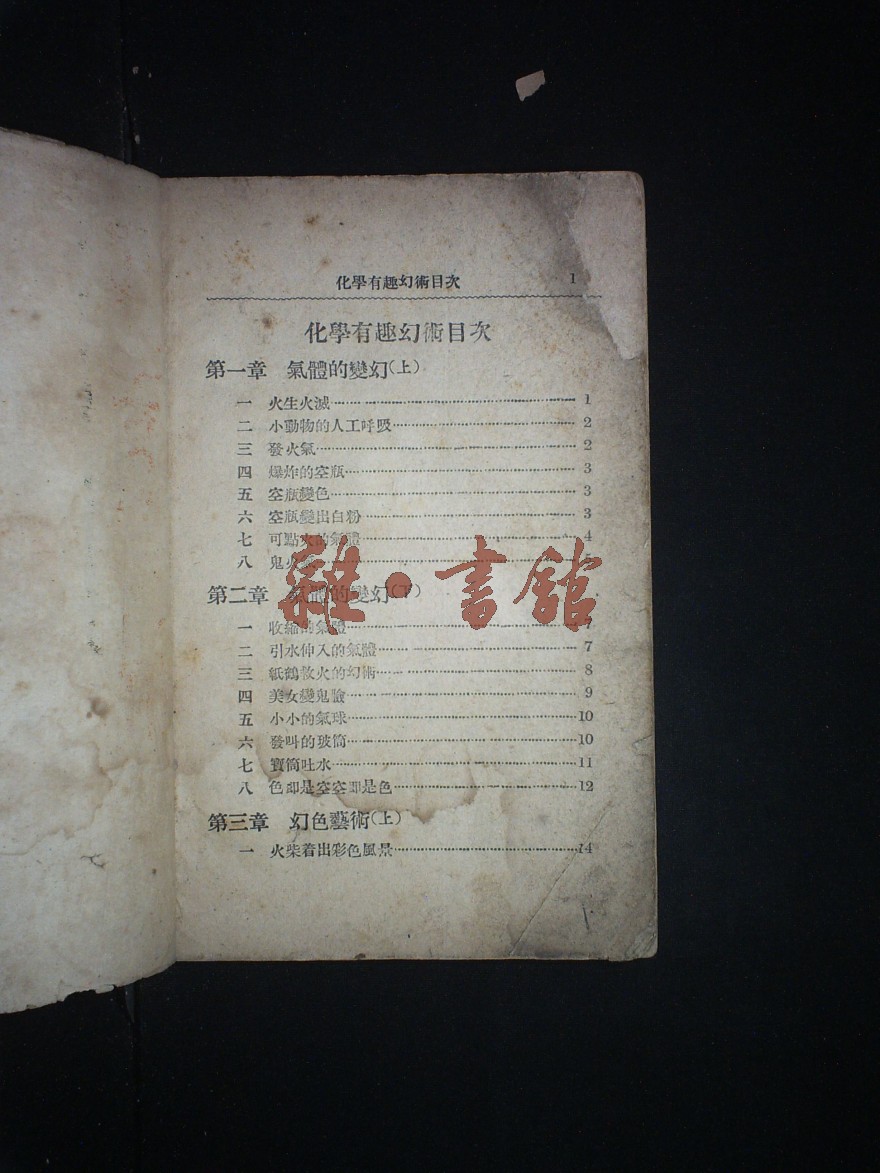 化學有趣幻術目次 1
化學有趣幻術目次
第一章 氣體的變幻(上)
一 火生火滅 1
二 小動物的人工呼吸 2
三 發火氣 2
四 爆炸的空瓶 3
五 空瓶變色 3
六 空瓶變出白粉 3
七 可點火的氣體 4
八 鬼火
雜·書館
第二章 氣體的變幻(下)
一 收縮的氣體
二 引水伸入的氣體 7
三 紙鶴救火的幻術 8
四 美女變鬼臉 9
五 小小的氣球 10
六 發叫的玻筒 10
七 寶筒吐水 11
八 色卽是空空卽是色 12
第三章 幻色藝術(上)
一 火柴着出彩色風景 14